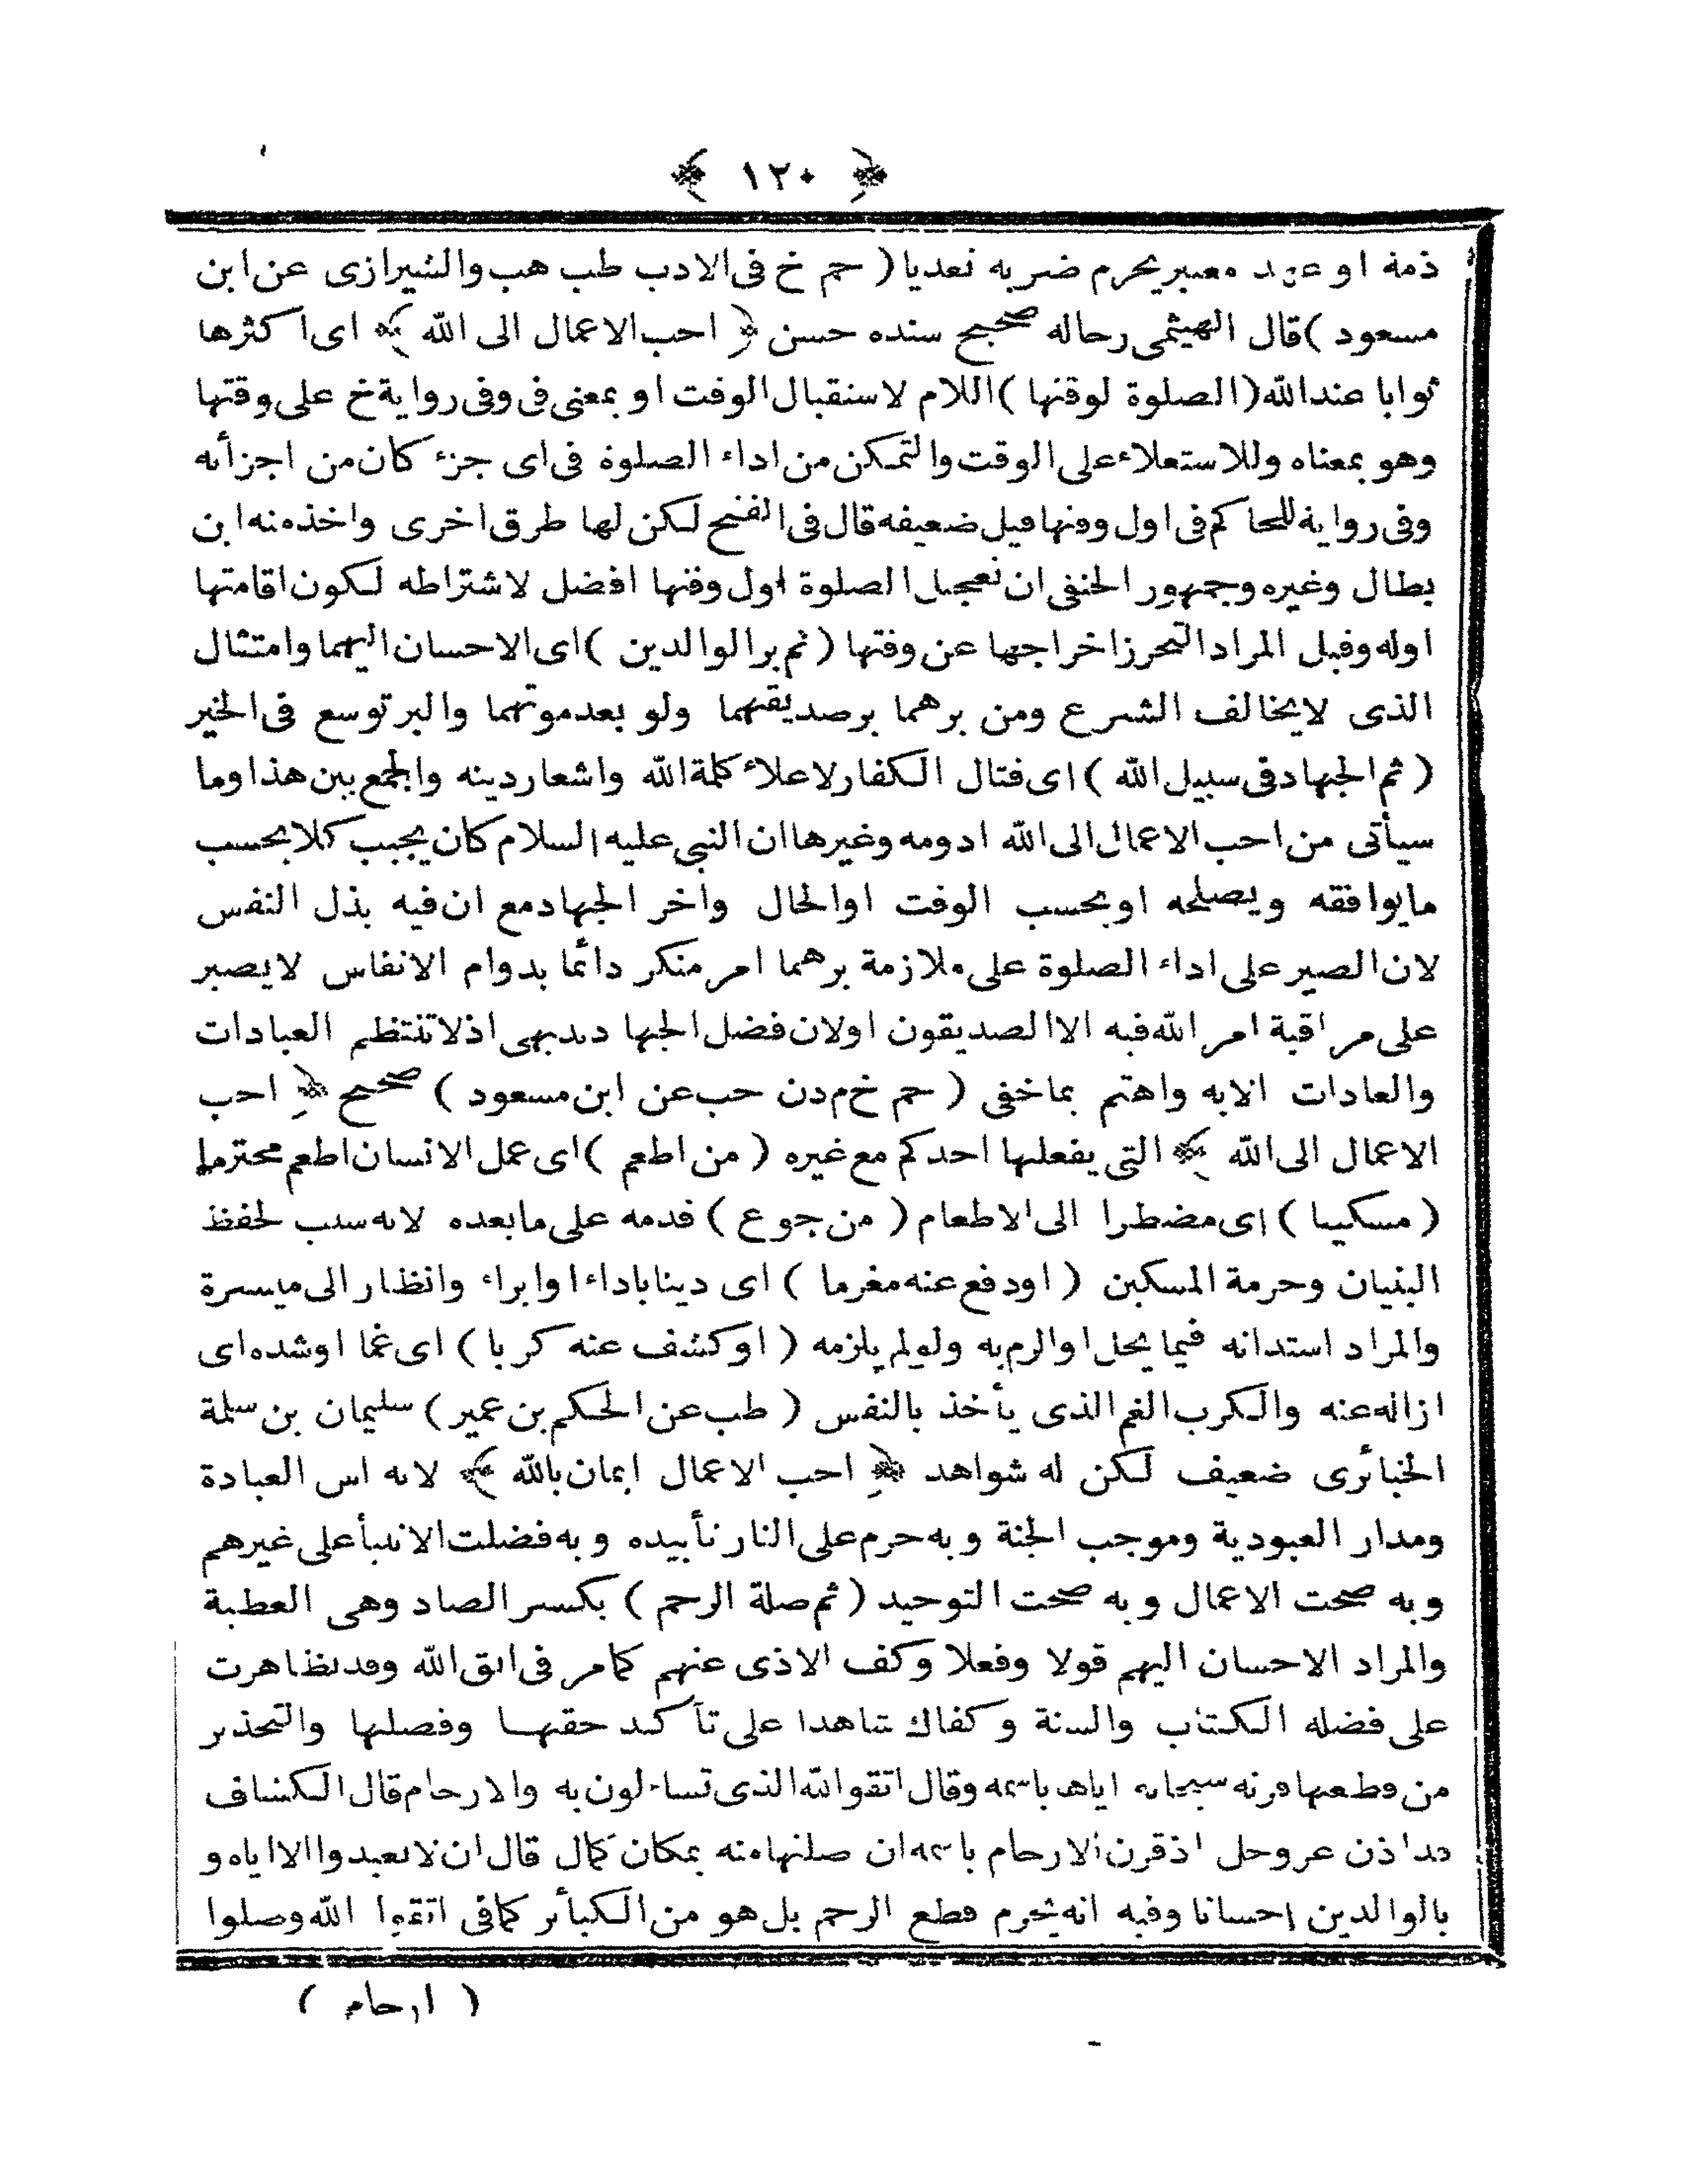 ﴿ ١٢٠ ﴾
ذمة او عهد معبر يحرم ضربه تعديا ( حم خ فى الادب طب هب والشيرازى عن ابن
مسعود ) قال الهيثمى رجاله صحيح سنده حسن ﴿ احب الاعمال الى الله ﴾ اى اكثرها
ثوابا عند الله ( الصلوة لوقتها ) اللام لاستقبال الوقت او بمعنى فى وفى رواية خ على وقتها
وهو بمعناه وللاستعلاء على الوقت والتمكن من اداء الصلوة فى اى جزء كان من اجزأه
وفى رواية للحاكم فى اول وقتها قيل ضعيفه قال فى الفتح لكن لها طرق اخرى واخذ منه ابن
بطال وغيره وجمهور الحنفى ان تعجيل الصلوة اول وقتها افضل لاشتراطه لكون اقامتها
اوله وقيل المراد التحرز اخراجها عن وقتها ( ثم بر الوالدين ) اى الاحسان اليهما وامتثال
الذى لا يخالف الشرع ومن برهما بر صديقهما ولو بعد موتهما والبر توسع فى الخير
( ثم الجهاد فى سبيل الله ) اى قتال الكفار لاعلاء كلمة الله واشعار دينه والجمع بين هذا وما
سيأتى من احب الاعمال الى الله ادومه وغيرها ان النبى عليه السلام كان يجيب كلا بحسب
ما يوافقه ويصلحه او بحسب الوقت او الحال واخر الجهاد مع ان فيه بذل النفس
لان الصبر على اداء الصلوة على ملازمة برهما امر متكرر دائما بدوام الانفاس لا يصبر
على مراقبة امر الله فيه الا الصديقون اولان فضل الجها دبديهى اذ لا تنتظم العبادات
والعادات الا به واهتم بما خفى ( حم خ م د ن حب عن ابن مسعود ) صحيح ﴿ احب
الاعمال الى الله ﴾ التى يفعلها احدكم مع غيره ( من اطعم ) اى عمل الانسان اطعم محترما
( مسكينا ) اى مضطرا الى الاطعام ( من جوع ) قدمه على ما بعده لانه سبب لحفظ
البنيان وحرمة المسكين ( او دفع عنه مغرما ) اى دينا باداء او ابراء وانظار الى ميسرة
والمراد استدانه فيما يحل او الزم به ولو لم يلزمه ( او كشف عنه كربا ) اى غما او شده اى
ازاله عنه والكرب الغم الذى يأخذ بالنفس ( طب عن الحكم بن عمير ) سليمان بن سلمة
الخبائرى ضعيف لكن له شواهد ﴿ احب الاعمال ايمان بالله ﴾ لانه اس العبادة
ومدار العبودية وموجب الجنة وبه حرم على النار تأبيده وبه فضلت الانبيأ على غيرهم
وبه صحت الاعمال وبه صحت التوحيد ( ثم صلة الرحم ) بكسر الصاد وهى العطية
والمراد الاحسان اليهم قولا وفعلا وكف الاذى عنهم كما مر فى اتق الله وقد تظاهرت
على فضله الكتاب والسنة وكفاك شاهدا على تأكيد حقها وفضلها والتحذير
من قطعها قرنه سبحانه اياها باسمه وقال اتقوا الله الذى تساءلون به والارحام قال الكشاف
قد اذن عز وجل اذ قرن الارحام باسمه ان صلتها منه بمكان كمال قال ان لا تعبدوا الا اياه و
بالوالدين احسانا وفيه انه يحرم قطع الرحم بل هو من الكبأر كما فى اتقوا الله وصلوا
( ارحام )